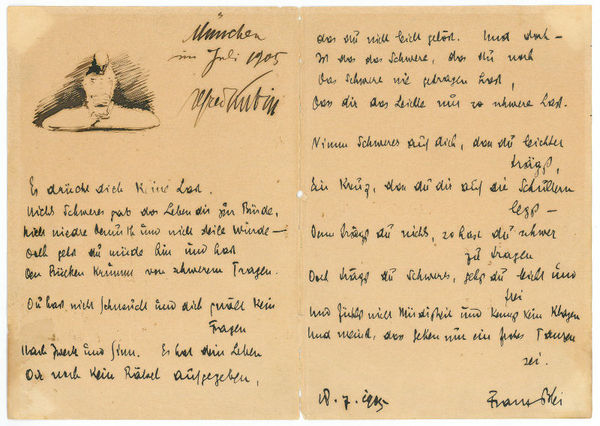 München
im Juli 1905
Alfred Kubin
Es drückt dich keine Last.
Nichts Schweres gab das Leben dir zur Bürde,
nicht niedre Demuth und nicht steile Würde —
Doch gehst du müde hin und hast
Den Rücken krumm von schwerem Tragen.
Du hast nicht Sehnsucht und dich quält kein
Fragen
Nach Zweck und Sinn. Es hat dein Leben
Dir noch kein Rätsel aufgegeben,
das du nicht leicht gelöst. Und doch —
Ist das das Schwere, das du noch
Das Schwere nie getragen hast,
Dass dir das Leichte nur so schwere Last.
Nimm Schweres auf dich, dass du leichter
trägst,
Ein Kreuz, das du dir auf die Schultern
legst —
Denn trägst du nichts, so hast du schwer
zu tragen
Doch trägst du Schweres, gehst du leicht und
frei
Und fühlst nicht Müdigkeit und kennst kein Klagen
Und meinst, das Gehen nur ein frohes Tanzen
sei.
18.7.1905 Franz Blei